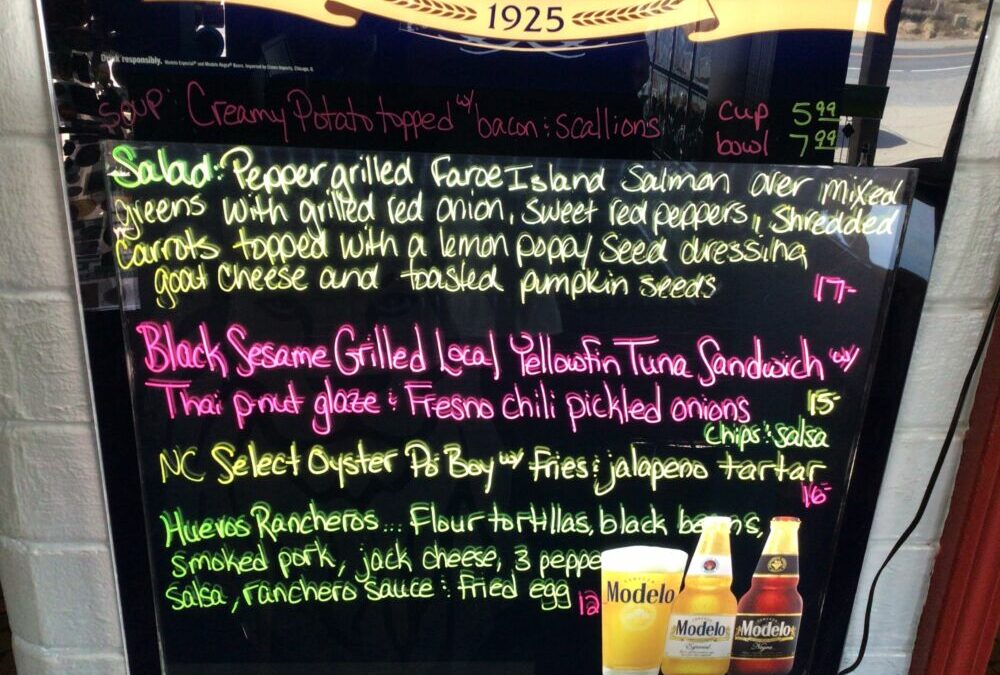 1925
responsibly.
SOUP: Creamy Potato topped w/ bacon & scallions cup 5.99
bowl 7.99
Salad: Pepper grilled Faroe Island Salmon over mixed
greens with grilled red onion, sweet red peppers, shredded
carrots topped with a lemon poppy seed dressing
goat cheese and toasted pumpkin seeds 17-
Black Sesame Grilled Local Yellowfin Tuna Sandwich w/
Thai p-nut glaze & Fresno chili pickled onions 15-
chips & salsa
NC Select Oyster Po Boy w/ fries & jalapeno tartar
16-
Huevos Rancheros... Flour tortillas, black beans,
smoked pork, jack cheese, 3 peppe
salsa, ranchero sauce & fried egg 12
Modelo
Modelo
Especial
Modelo
Negra